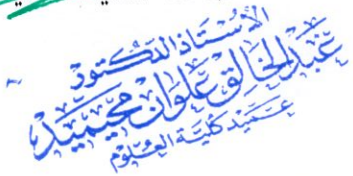 الأستاذ الدكتور
عبد الخالق علوان محيميد
عميد كلية العلوم